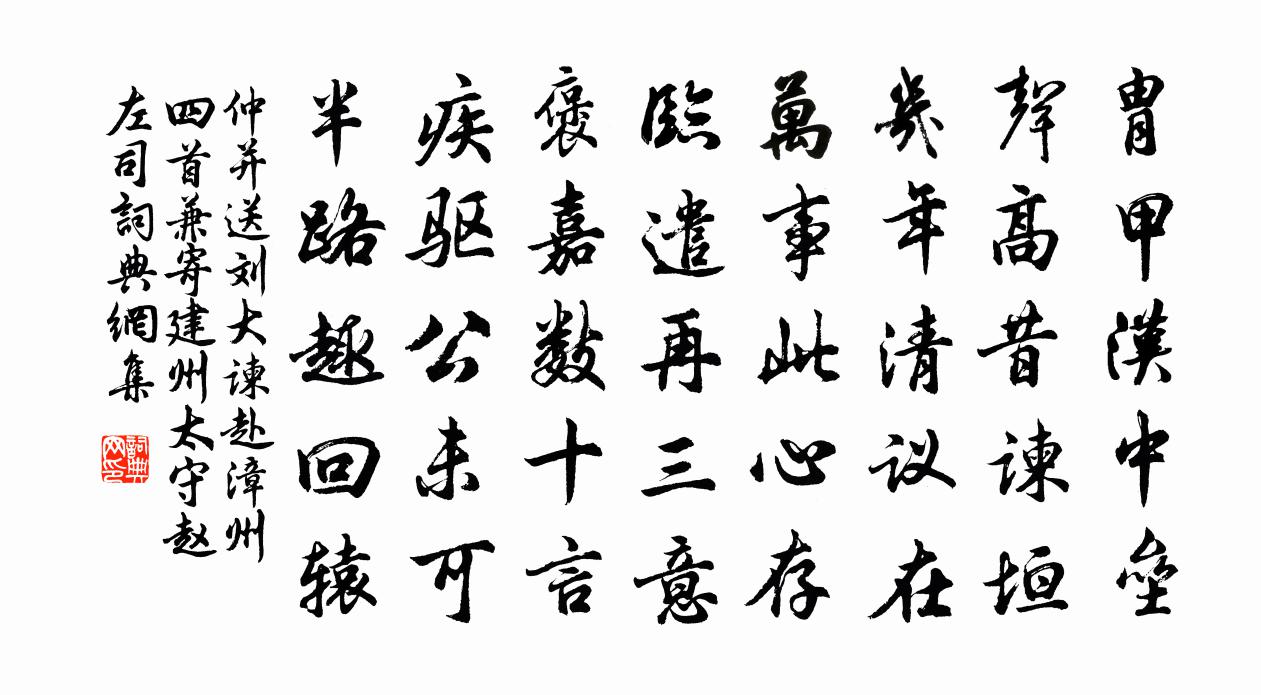 胄甲漢中壘
聲高昔諫垣
幾年清议在
萬事此心存
臨遣再三意
褒嘉數十言
疾驱公未可
半路趣回辕
仲并送刘大谏赴漳州
四首兼寄建州太守赵
左司詞典網集
詞典网印